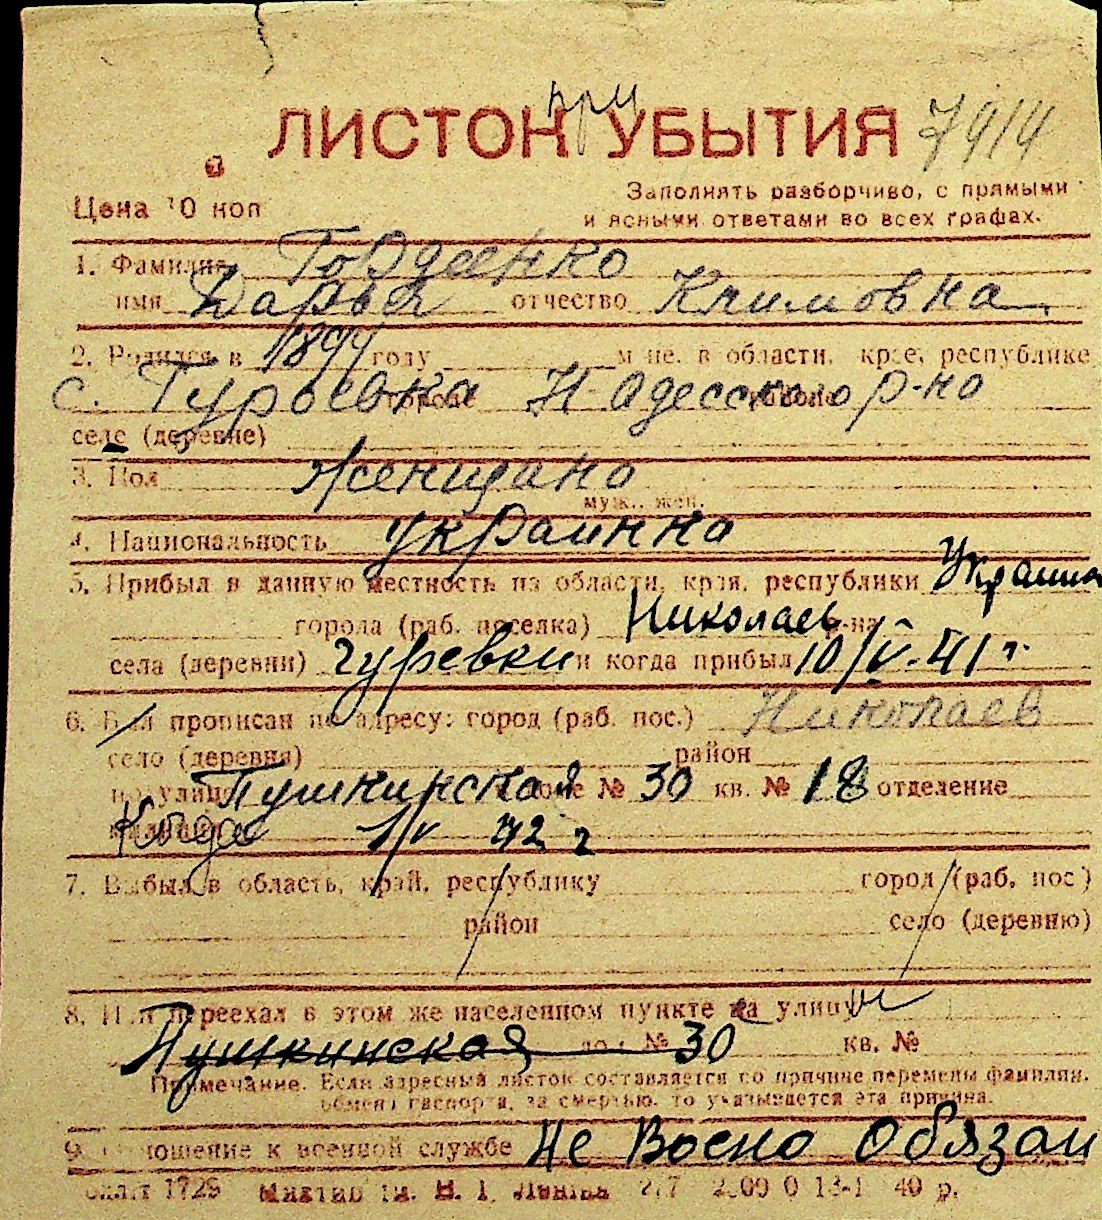 при
ЛИСТОК УБЫТИЯ 7914
Цена 10 коп
Заполнять разборчиво, с прямыми
и ясными ответами во всех графах.
1. Фамилия Гордеенко
имя Дарья отчество Климовна
2. Родился в 1899 году м-це, в области, крае, республике
с. Гурьевка городе Н Одесского р-на
селе (деревне)
3. Пол женщина
муж., жен.
4. Национальность украинка
5. Прибыл в данную местность из области, края, республики Украина
города (раб. поселка) Николаев р-на
села (деревни) Гуревки и когда прибыл 10/V-41 г.
6. Был прописан по адресу: город (раб. пос.) Николаев
село (деревня) район
по улице Пушкинская доме № 30 кв. № 18 отделение
милиции Когда 1/V 42 г
7. Выбыл в область, край, республику город (раб. пос)
район село (деревню)
8. Или переехал в этом же населенном пункте на улицу
Пушкинская дом № 30 кв. №
Примечание. Если адресный листок составляется по причине перемены фамилии,
обмена паспорта, за смертью, то указывается эта причина.
9. Отношение к военной службе Не Воено Обязан
1729 В. І. Леніна 40 р.